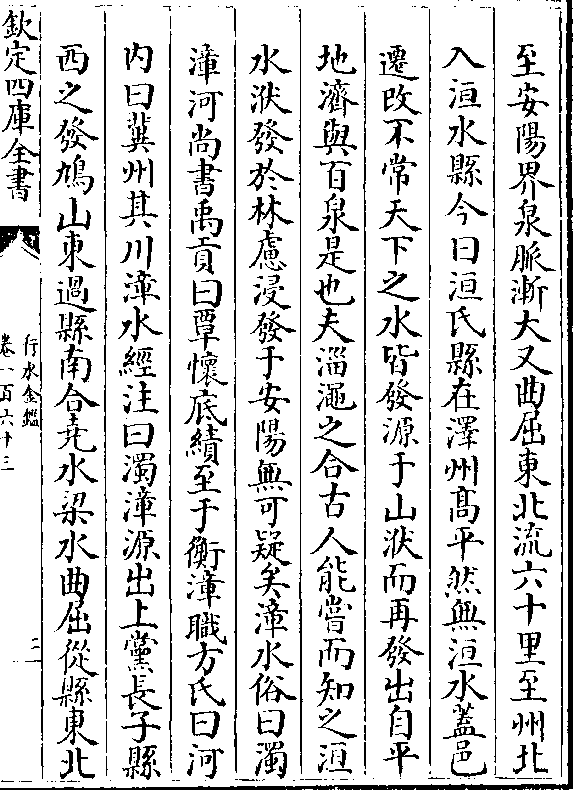 至安陽界泉脈漸大又曲屈東北流六十里至州北
入洹水縣今曰洹氏縣在澤州高平然無洹水蓋邑
遷改不常天下之水皆發源于山洑而再發出自平
地濟與百泉是也夫淄澠之合古人能嘗而知之洹
水洑發於林慮浸發于安陽無可疑矣漳水俗曰濁
漳河尚書禹貢曰覃懷底績至于衡漳職方氏曰河
内曰冀州其川漳水經注曰濁漳源出上黨長子縣
西之發鳩山東過縣南合堯水梁水曲屈從縣東北
欽定四庫全書
行水金鑑
卷一百六十三
二